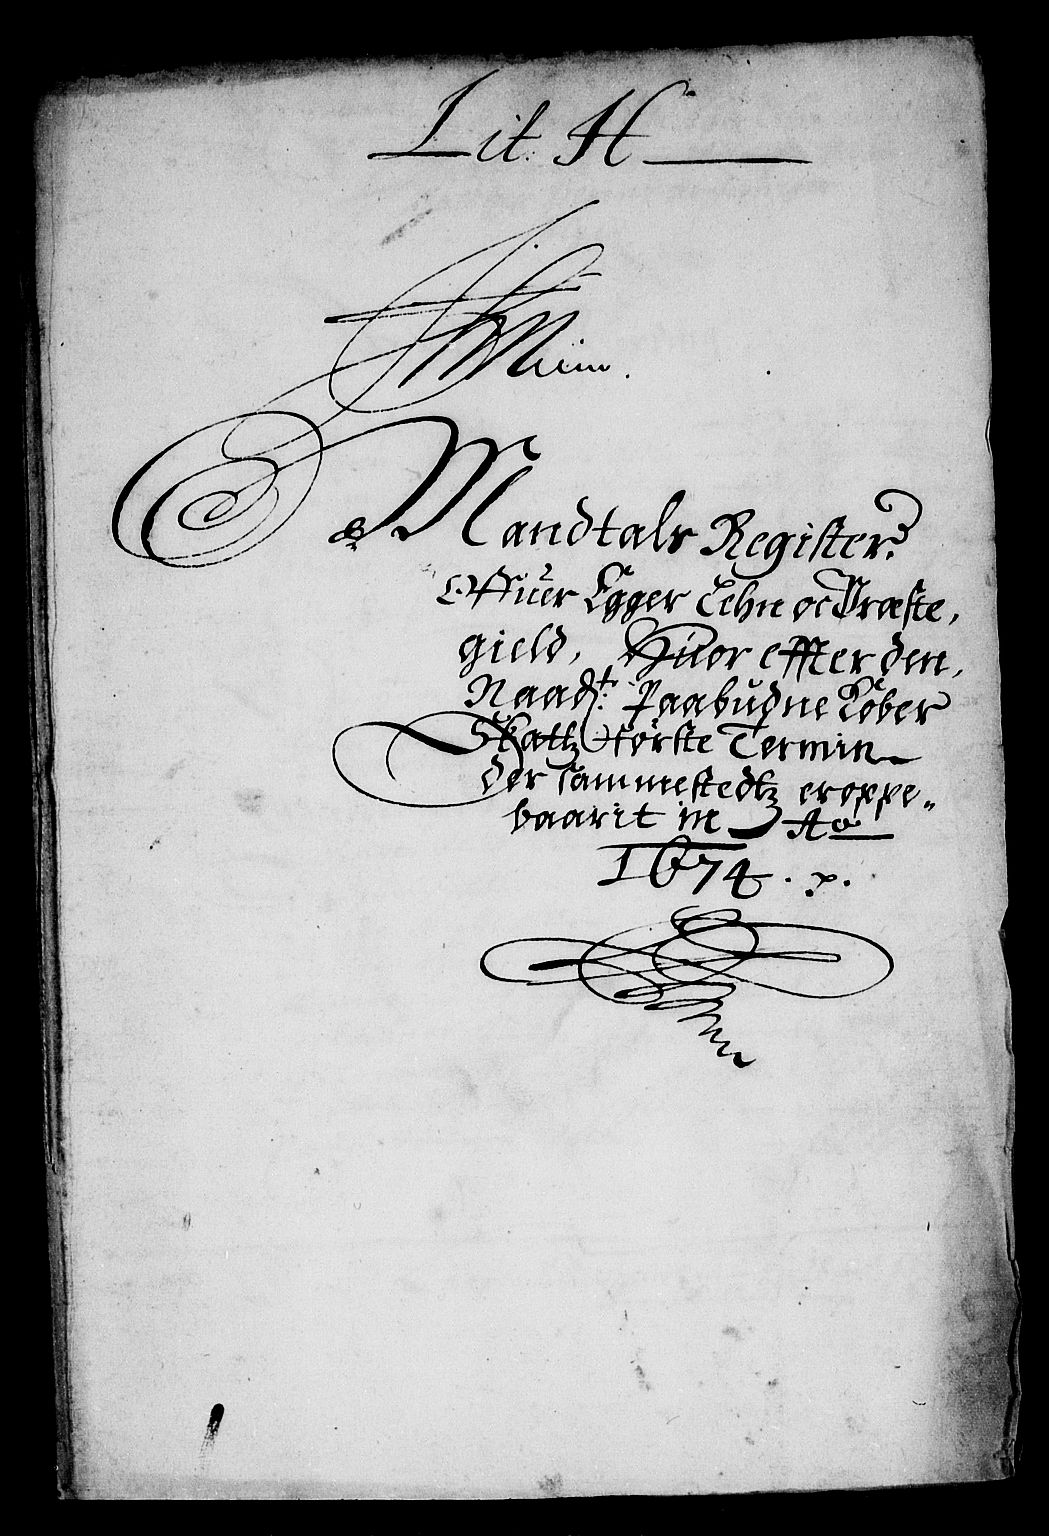 Lit H
Mandtals Register.
Offuer Egger Lehn oc Præste,
gield, Huor effter den,
Naadt: Paabudne Kober
Skattz første Termin
der sammestedtz eroppe„
baarit in Ao
1674.